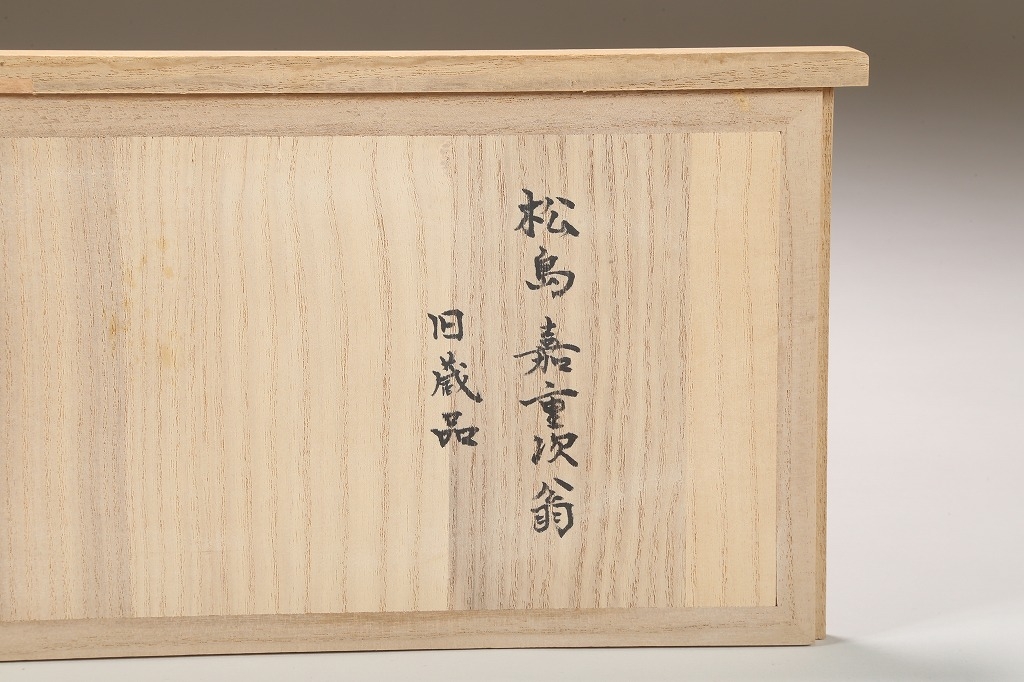 松島嘉重次翁
旧蔵品